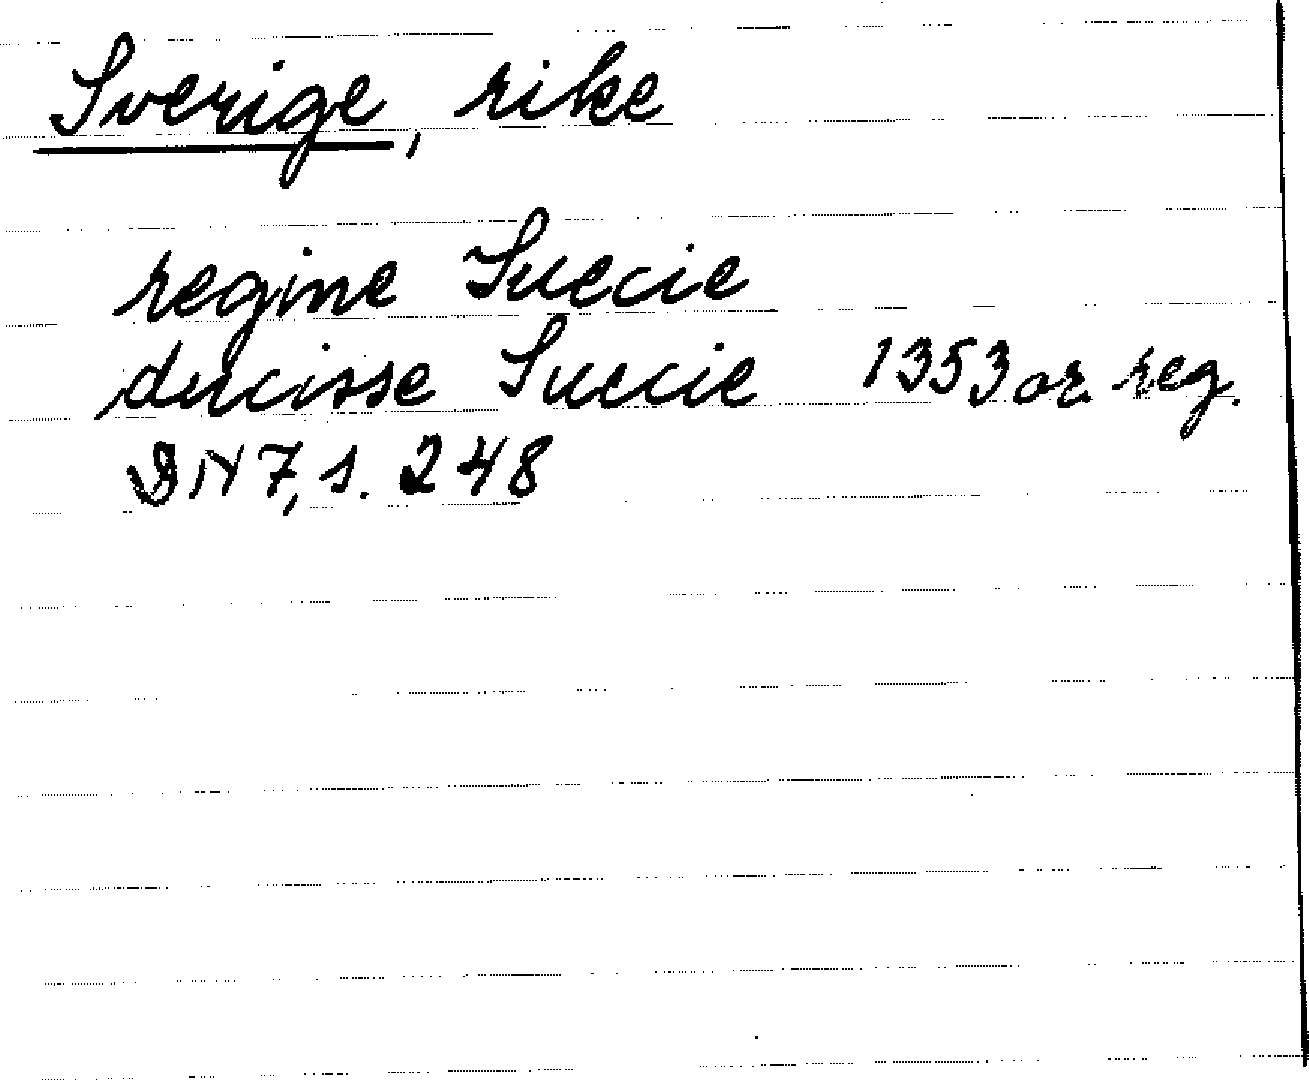 Sverige, rike
regine Suecie
ducisse Suecie 1353 or reg.
DN 7, s. 248